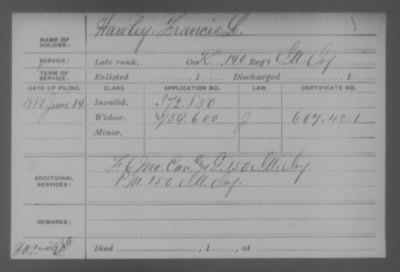 NAME OF SOLDIER: Hawley Francis L.
SERVICE: Late rank, Co. K, 140 Reg't Ill. Inf
TERM OF SERVICE: Enlisted , 1 Discharged , 1
DATE OF FILING. CLASS. APPLICATION NO. LAW. CERTIFICATE NO.
1880 June 14 Invalid, 372.850
Widow, 789.600 J 607.421
Minor,
ADDITIONAL SERVICES: Mo. Cav. 150 Ill. Inf
150 Ill Inf.
REMARKS:
Died , 1 , at